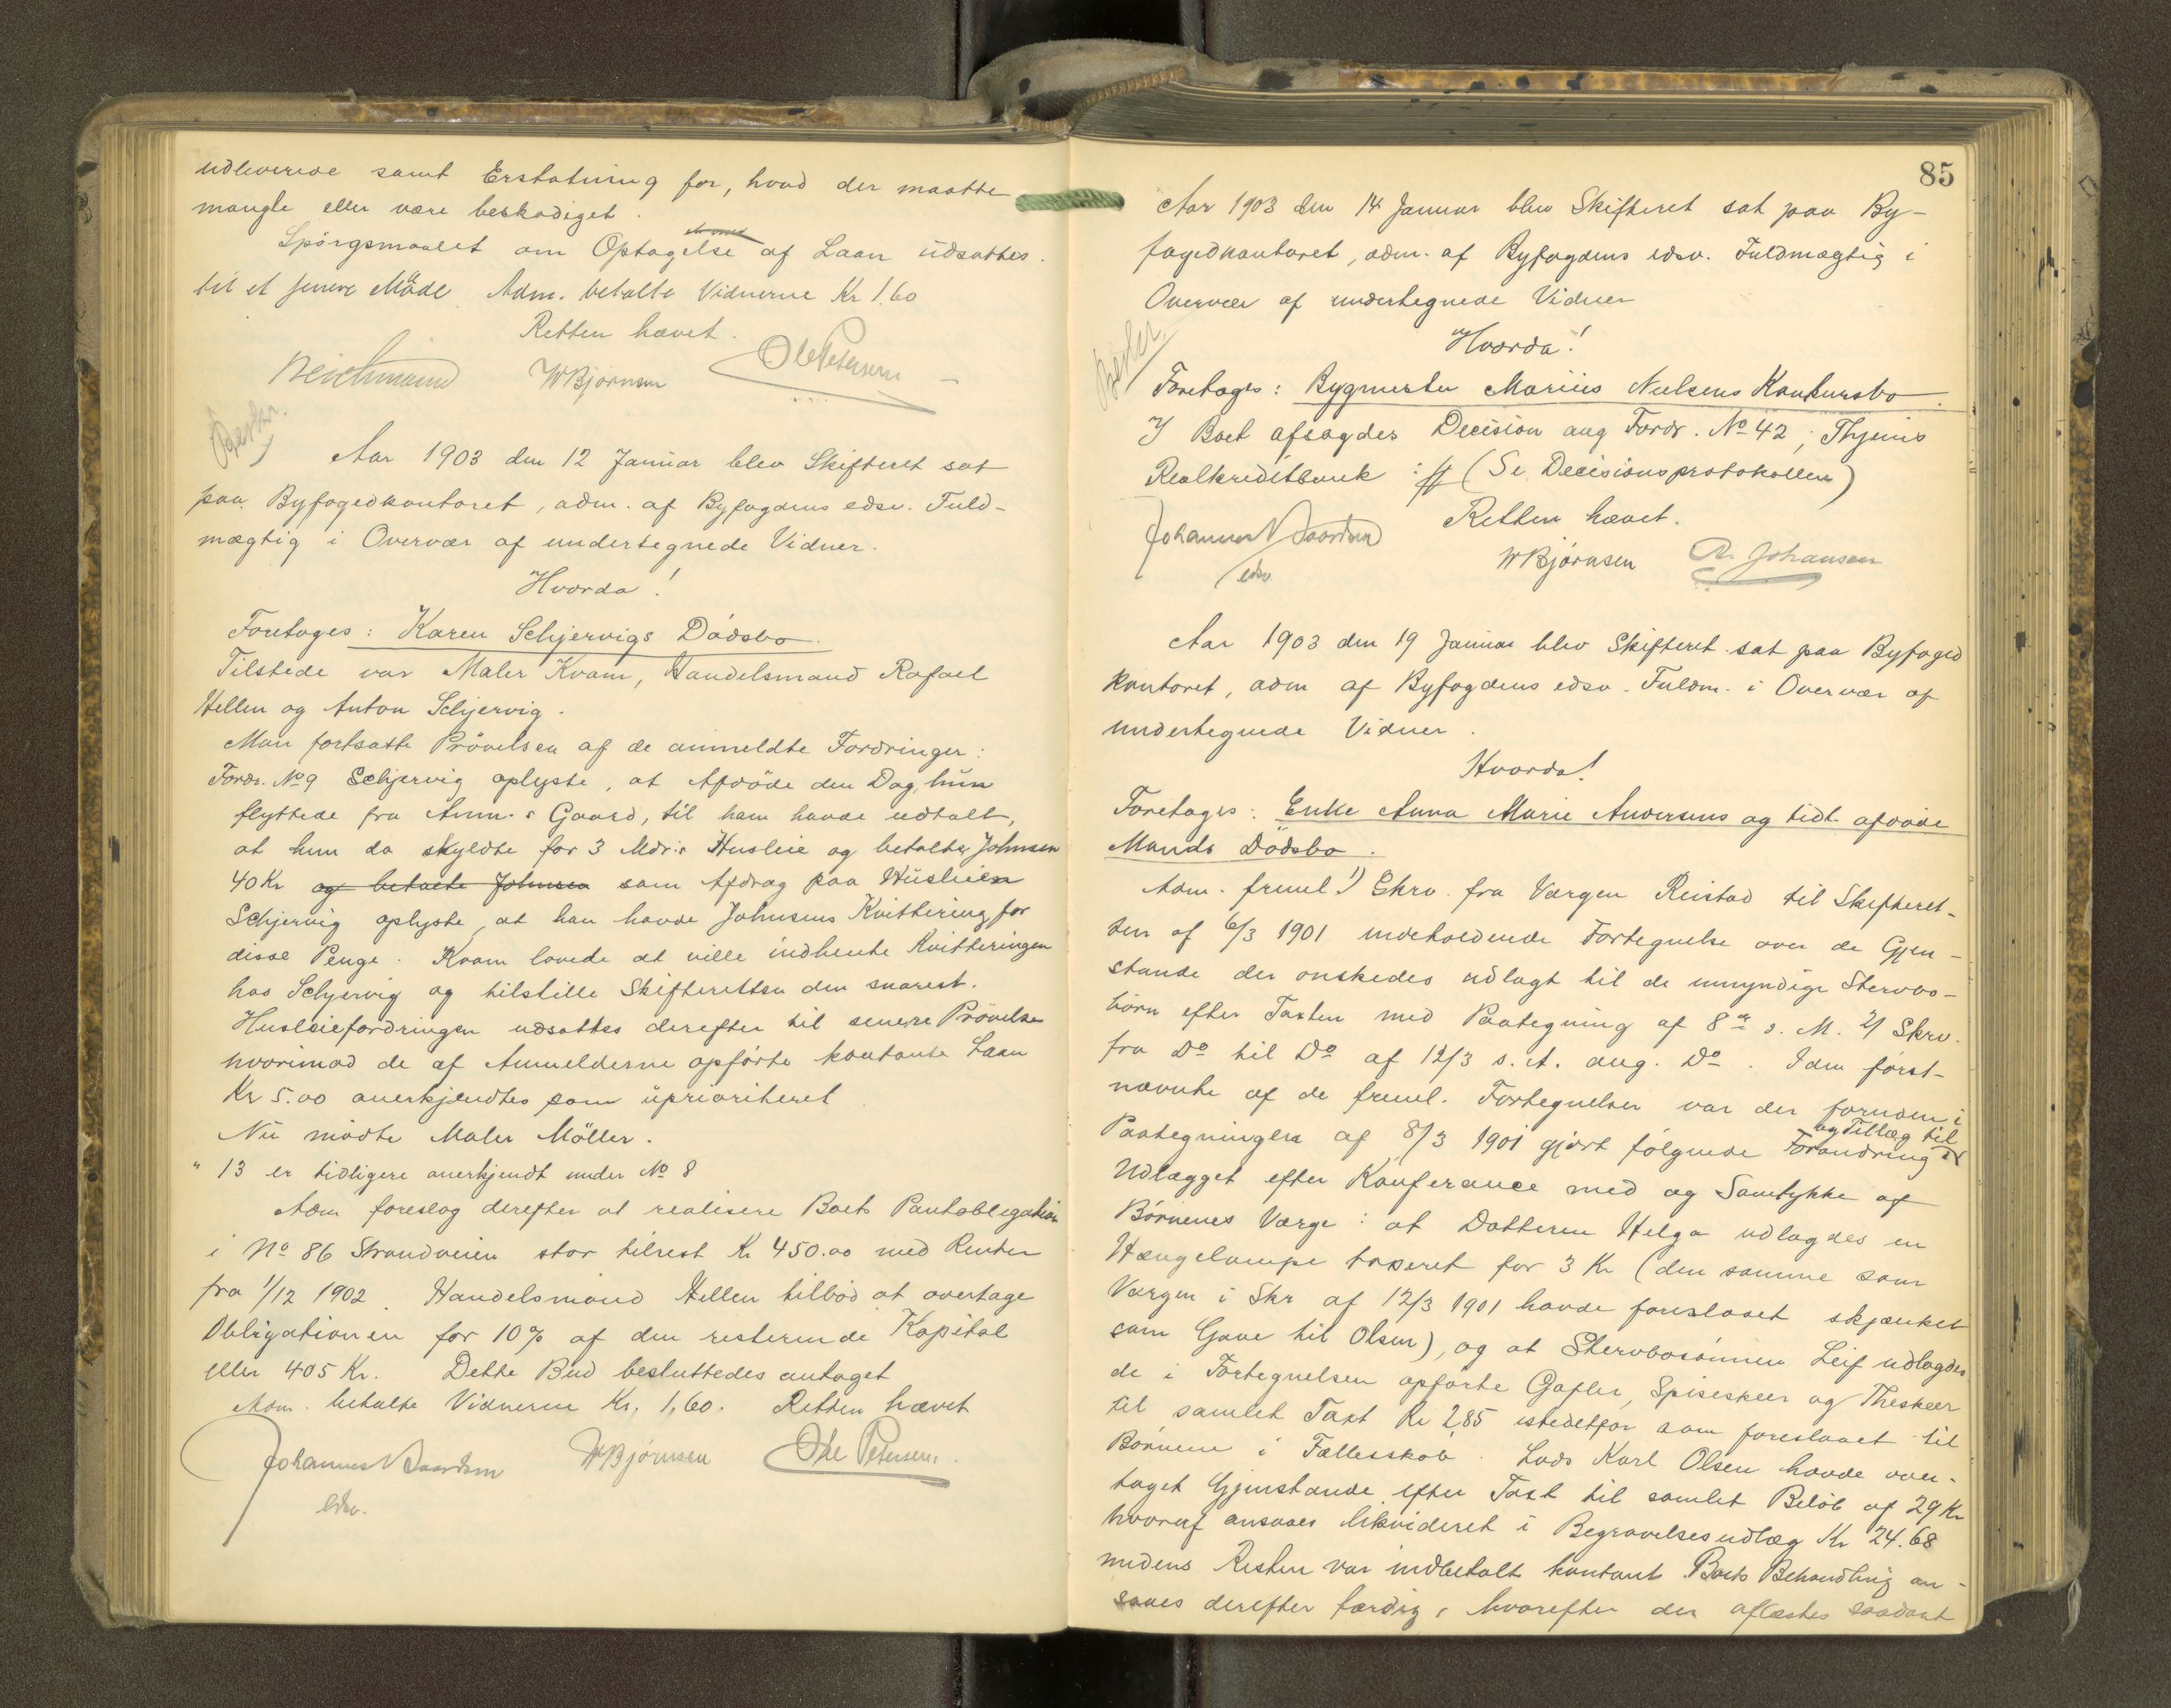 udleverede samt Erstatning for, hvad der maatte
mangle eller være beskadiget.
Spörgsmaalet om Optagelse af Laan udsattes
til et senere Möde Adm. betalte Vidnerne Kr 1.60
Retten hævet.
WBjørnsen Ole Petersen
Aar 1903 den 12 Januar blev Skifteret sat
paa Byfogedkontoret, adm. af Byfogdens edsv. Fuld-
mægtig i Overvær af undertegnede Vidner.
Hvorda!
Foretages: Karen Schjervigs Dödsbo.
Tilstede var Maler Kvam, Handelsmand Rafael
Hellen og Anton Schjervig.
Man fortsatte Prövelsen af de anmeldte Fordringer:
Fordr. No 9 Schjervig oplyste, at Afdöde den Dag, hun
flyttede fra Anm.s Gaard, til ham havde udtalt,
at hun da skyldte for 3 Mdr.s Husleie og betalte Johnsen
40 Kr og betalte Johnsen som Afdrag paa Husleien
Schjervig oplyste, at han havde Johnsens Kvittering for
disse Penge. Kvam lovede at ville indhente Kvitteringen
hos Schjervig og tilstille Skifteretten den snarest.
Husleiefordringen udsattes derefter til senere Prövelse
hvorimod de af Anmelderne opförte kontante Laan
Kr 5.00 anerkjendtes som uprioriteret
Nu mödte Maler Möller.
" 13 er tidligere anerkjendt under No 8
Adm foreslog derefter at realisere Boets Pantobligation
i No 86 Strandveien stor tilrest Kr 450.00 med Renter
fra 1/12 1902. Handelsmand Hellen tilböd at overtage
Obligationen for 10% af den resterende Kapital
eller 405 Kr. Dette Bud besluttedes antaget
Adm. betalte Vidnerne Kr. 1,60. Retten hævet
WBjørnsen Ole Petersen
edsv.
85
Aar 1903 den 14 Januar blev Skifteret sat paa By-
fogedkontoret, adm. af Byfogdens edsv. Fuldmægtig i
Overvær af undertegnede Vidner
Hvorda!
Foretages: Bygmester Marius Nielsens Konkursbo.
I Boet afsagdes Decision ang Fordr. No 42, Thjems
Realkreditbank :ff (Se Decisionsprotokollen)
Retten hævet.
edsv
WBjørnsen A. Johansen
Aar 1903 den 19 Januar blev Skifteret sat paa Byfoged
kontoret, adm af Byfogdens edsv. Fuldm. i Overvær af
undertegnede Vidner.
Hvorda!
Foretages: Enke Anna Marie Andersens og tidl. afdöde
Mands Dödsbo.
Adm. freml. 1) Skrv. fra Værgen Reistad til Skifteret-
ten af 6/3 1901 indeholdende Fortegnelse over de Gjen-
stande der önskedes udlagt til de umyndige Stervbo-
börn efter Taxten med Paategning af 8de s. M. 2) Skrv.
fra Do til Do af 12/3 s. A. ang. Do. I den först-
nævnte af de freml. Fortegnelser var der foruden i
Paategningen af 8/3 1901 gjort fölgende Forandring og Tillæg til
Udlægget efter Konferance med og Samtykke af
Börnenes Værge: at Datteren Helga udlagdes en
Hængelampe taxeret for 3 Kr (den samme som
Værgen i Skr af 12/3 1901 havde foreslaaet skjænket
som Gave til Olsen), og at Stervbosönnen Leif udlagdes
de i Fortegnelsen opförte Gafler, Spiseskeer og Theskeer
til samlet Taxt Kr 2,85 istedetfor som foreslaaet til
Börnene i Fællesskab. Lods Karl Olsen havde over-
taget Gjenstande efter Taxt til samlet Belöb af 29 Kr
hvoraf ansaaes likvideret i Begravelsesudlæg Kr 24.68
medens Resten var indbetalt kontant. Boets Behandling an-
saaes derefter færdig, hvorefter der aflæstes saadant